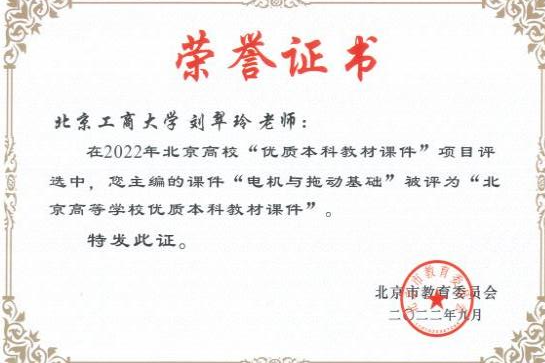 荣誉证书
北京工商大学刘翠玲老师：
在2022年北京高校“优质本科教材课件”项目评
选中，您主编的课件“电机与拖动基础”被评为“北
京高等学校优质本科教材课件”。
特发此证。
北京市教育委员会
二〇二二年九月
北京市教育委员会